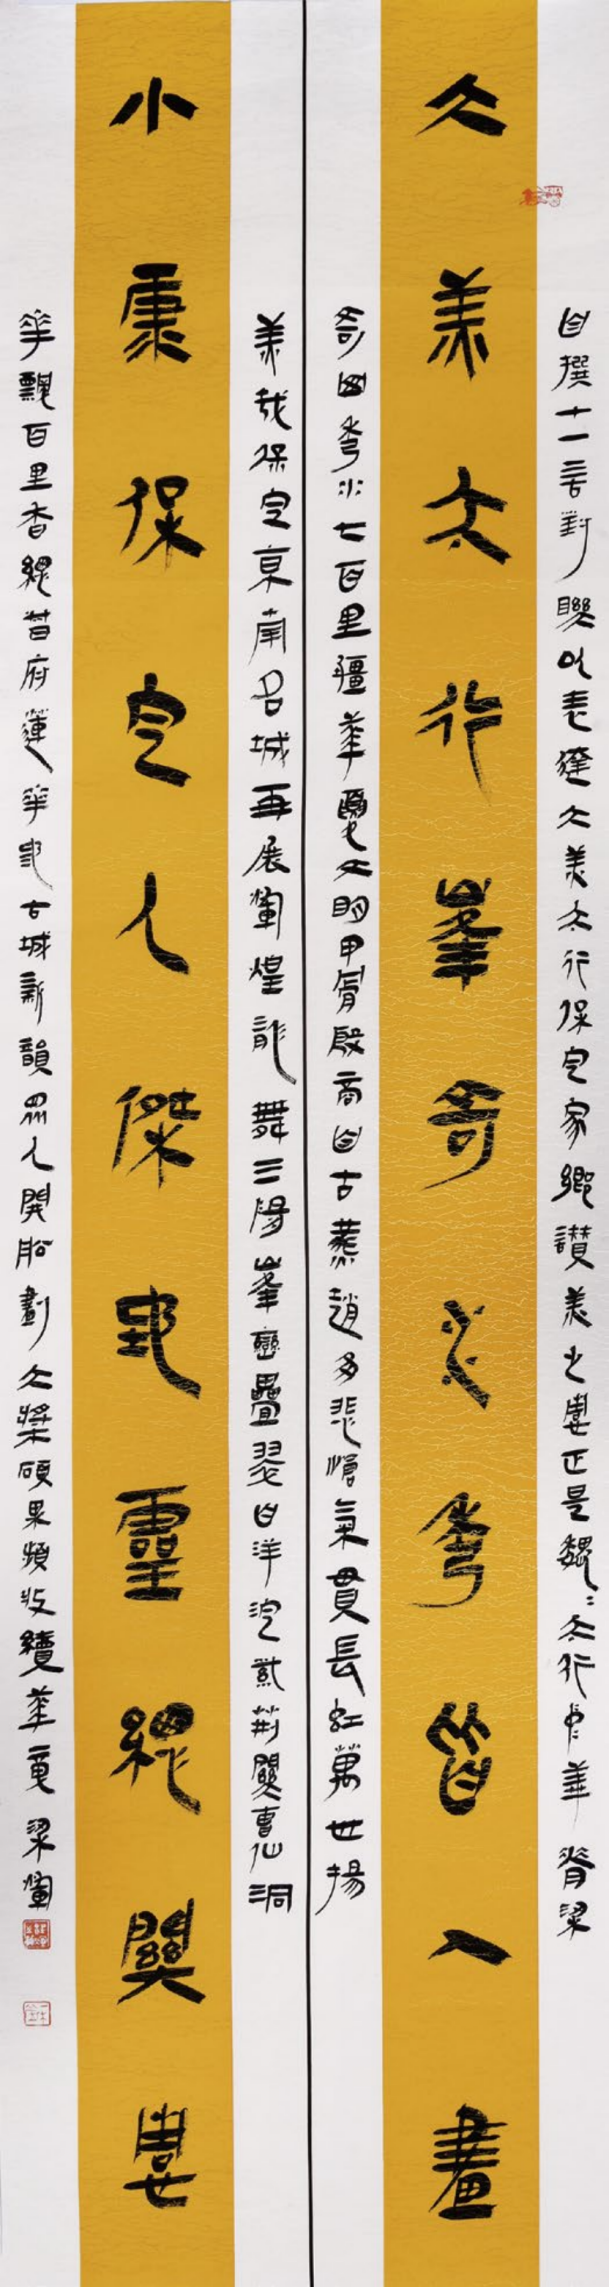 自撰十一言對聯以表達大美太行保定家鄉讚美之正是巍巍太行中華脊梁
大美太行峯奇水秀皆入畫
奇山秀水七百里疆華夏文明甲骨殷商自古燕趙多悲愴氣貫長紅萬世揚
美哉保定京南名城再展輝煌龍舞三陽峯巒疊翠白洋淀紫荊關曹仙洞
小康保定人傑地靈總關
華飄百里香總督府蓮華池古城新韻眾人開船劃大槳碩果頻收續華章 梁輝